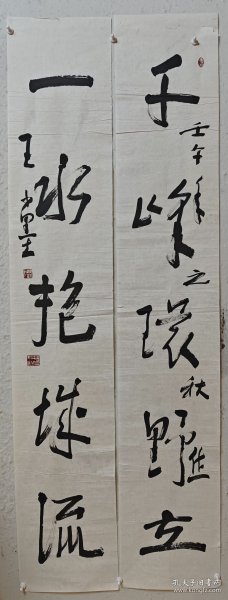 千峰環野立
壬午年之秋
一水抱城流
王小墨
孔夫子旧书网